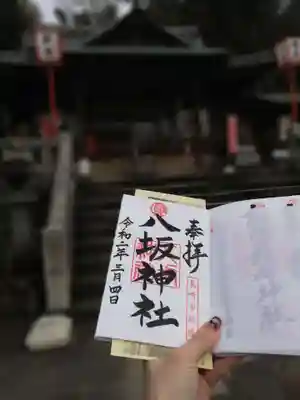 奉拝
八坂神社
令和二年三月四日